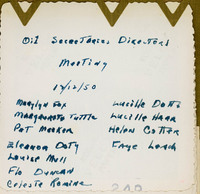 Oil Secretaries Directors
Meeting
12/12/50
Marylyn Fox
Margaruete Tuttle
Pat Meeker
Eleanor Doty
Louise Moll
Flo Duncan
Celeste Romine
Lucille Dotts
Lucille Harr
Helen Cotter
Faye Leach